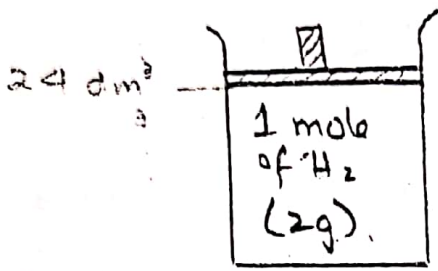 24 dm³
1 mole
of H₂
(2g).